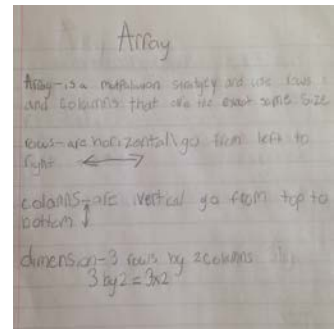 Array
Array-is a multplication strategy and use rows
and columns that are the exact same size
rows-are horizontal\go from left to
right
colanns-are vertical go from top to
bottom
dimension-3 rows by 2 columns
3 by 2 = 3x2